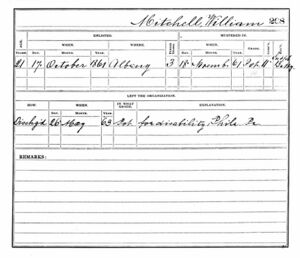 Mitchell, William 208
ENLISTED. MUSTERED IN.
AGE. WHEN. WHERE. WHEN.
YEARS. DAY. MONTH. YEAR. DAY. MONTH. YEAR.
21 17 October 1861 Albany 3 18 Novemb. 61
LEFT THE ORGANIZATION.
HOW. WHEN. IN WHAT GRADE. EXPLANATION.
DAY. MONTH. YEAR.
Dischgd 26 May 63 for disability, Phila Pa
REMARKS: